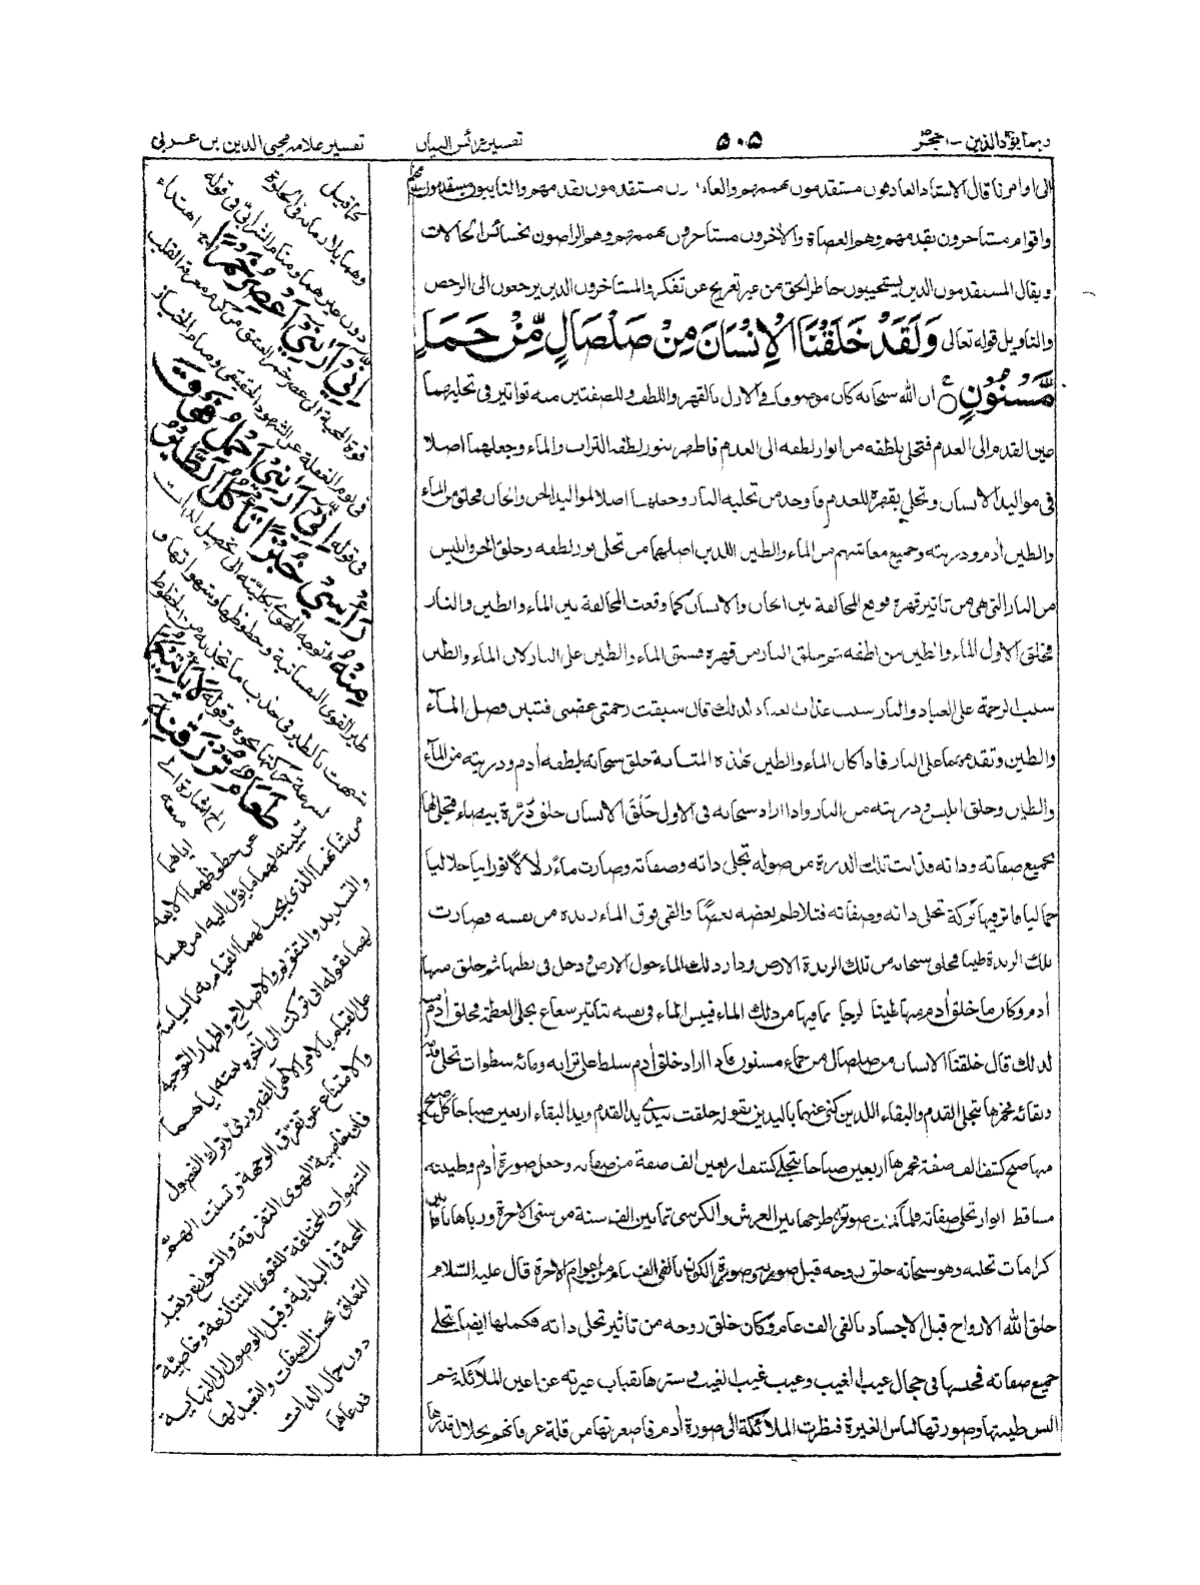 ربما يود الذين - الحجر
٥٠٥
تفسير عرائس البيان
تفسير علامه محيى الدين بن عربى
الى اوامرنا قال الاستاد العارفون مستقدمون بهممهم والعابدون مستقدمون بقدمهم والتايبون مستقدمون
واقوام مستاخرون بقدمهم وهم العصاة والآخرون مستاخرون بهممهم وهم الراضون بخسائس الحالات
ويقال المستقدمون الذين يستجيبون خاطر الحق من غير تعريج عن تفكر والمستاخرون الذين يرجعون الى الرخص
والتاويل قوله تعالى وَلَقَدْ خَلَقْنَا الْاِنْسَانَ مِنْ صَلْصَالٍ مِّنْ حَمَاٍ
مَّسْنُوْنٍ ان الله سبحانه كان موصوفا فى الازل بالقهر واللطف وللصفتين منه تواتير فى تجليهما
من القدم الى العدم فتجلى بلطفه من انوار لطفه الى العدم فاظهر بنور لطفه التراب والماء وجعلهما اصلا
فى مواليد الانسان وتجلى بقهره للعدم فاوجد من تجليه النار وجعلها اصلا لمواليد الجن والجان فخلق من الماء
والطين آدم وذريته وجميع معاشهم من الماء والطين اللذين اصلهما من تجلى نور لطفه وخلق الجن وابليس
من النار التى هى من تاثير قهره فوقع المخالفة بين الجان والانسان كما وقعت المخالفة بين الماء والطين والنار
فخلق الاول الماء والطين من لطفه ثم خلق النار من قهره فسبق الماء والطين على النار كان الماء والطين
سبب الرحمة على العباد والنار سبب عذاب العباد لذلك قال سبقت رحمتى غضبى فتبين فضل المآء
والطين وتقدمهما على النار فاذا كان الماء والطين بهذه المثابة خلق سبحانه بلطفه آدم وذريته من المآء
والطين وخلق ابليس وذريته من النار واذا اراد سبحانه فى الاول خلق الانسان خلق دُرّة بيضاء فتجلى لها
بجميع صفاته وذاته فذابت تلك الدرة من صولة تجلى ذاته وصفاته وصارت ماء زلالا نورانيا جلاليا
جماليا فاثر فيها بركة تجلى ذاته وصفاته فتلاطم بعضه بعضا والقى فوق الماء زبدة من نفسه فصارت
تلك الزبدة طينا فخلق سبحانه من تلك الزبدة الارض ودار ذلك الماء حول الارض ودخل فى بطنها ثم خلق منها
آدم وكان ما خلق آدم منها طينا لزجا بما فيها من ذلك الماء فيبس الماء فى نفسه بتاثير شعاع تجلى العظمة فخلق آدم منه
لذلك قال خلقنا الانسان من صلصال من حماء مسنون فاذا اراد خلق آدم سلط على ترابه ومائه سطوات تجلى قدمه
وبقائه فخمرها بتجلى القدم والبقاء اللذين كنى عنهما باليدين بقوله خلقت بيدى يد القدم ويد البقاء اربعين صباحا كل صبح
منها صبح كشف الف صفة خمرها اربعين صباحا بتجلى كشف اربعين الف صفة من صفاته وجعل صورة آدم وطينته
مساقط انوار تجلى صفاته فلما كملت صورته طرحها بين العرش والكرسى ثمانين الف سنة من سنى الآخرة ورباها بافانين
كرامات تجليه وهو سبحانه خلق روحه قبل صورته وصورة الكون بالفى الف عام من اعوام الآخرة قال عليه السلام
خلق الله الارواح قبل الاجساد بالفى الف عام وكان خلق روحه من تاثير تجلى ذاته فكملها ايضا بتجلى
جميع صفاته فحبسها فى حجال غيب الغيب وغيب غيب الغيب وسترها بقباب غيرته عن اعين الملائكة ثم
البس طينتها وصورتها لباس الغيرة فنظرت الملائكة الى صورة آدم فاصغرتها من قلة عرفانهم بجلال قدرها
كما قيل
وهما يلازمانه فى الخلوة
دون غيرهما ومنام الشرابى فى قوله
اِنِّيْ اَرٰىنِيْ اَعْصِرُ خَمْرًا اهتداء
قوة المحبة الى عصر خمر العشق من كرم معرفة القلب
فى نوم الغفلة عن الشهود الحقيقى ومنام الخباز
فى قوله اِنِّيْ اَرٰىنِيْ اَحْمِلُ فَوْقَ
رَاْسِيْ خُبْزًا تَاْكُلُ الطَّيْرُ
مِنْهُ توجه الهوى بكليته الى تحصيل لذات
طير القوى النفسانية وحظوظها وشهواتها و
شبهت بالطير فى جذب ما تجذبه من الحظوظ
لسرعة حركتها نحوه وقوله لَا يَاْتِيْكُمَا
طَعَامٌ تُرْزَقٰنِهٖ
الخ اشارة الى
منعه
اياهما
عن حظوظهما الا بعد
تبيينه لهما ما يؤل اليه امرهما
من شانهما الذى يجب لهما القيام به بالسياسة
والتسديد والتقويم والاصلاح واظهار التوحيد
لهما بقوله انى تركت الى آخره بعثه اياهما
على القيام بالامر الالهى الضرورى وترك الفضول
والامتناع عن تفرق الوجهة وتشتت الهمّ
فان خاصية الهوى التفرقة والتوزع وتعبد
الشهوات المختلفة للقوى المتنازعة وخاصية
المحبة فى البداية وقبل الوصول الى النهاية
التعلق بحسن الصفات والتعبد لها
دون جمال الذات
فدعاهما